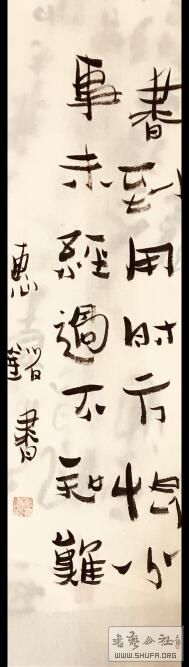 書到用时方恨少
事未經過不知難
惠書
书艺公社
WWW.SHUFA.ORG